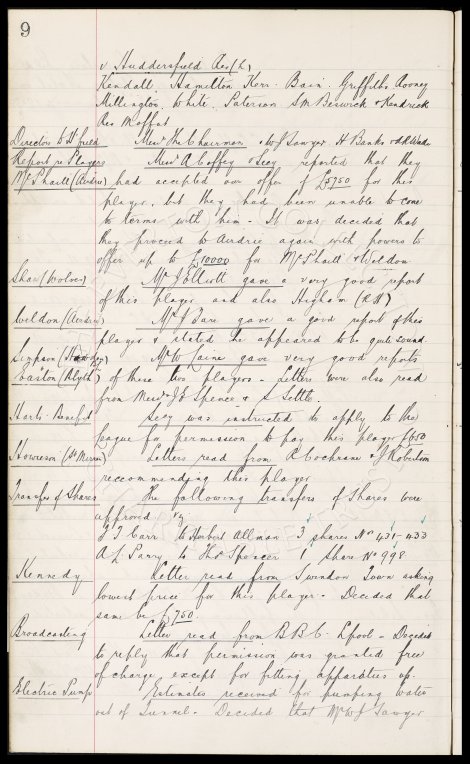 9
v Huddersfield Res (h)
Kendall. Hamilton Kerr. Bain. Griffiths Rooney
Millington. White. Paterson Sm. Beswick & Kendrick
Res Moffat
Directors to H'field Messrs The Chairman & W J Sawyer. H Banks & A R Wade
Report re Players Messrs A Coffey & Secy reported that they
McPhail (Airdrie) had accepted our offer of £5750 for this
player, but they had been unable to come
to terms with him - It was decided that
they proceed to Airdrie again with powers to
offer up to £10000 for McPhail & Weldon
Shaw (Wolves) Mr J Elliott gave a very good report
of this player and also Higham
Weldon (Airdrie) Mr J Bare gave a good report of this
player & stated he appeared to be quite sound
Simpson Mr W Laine gave very good reports
Easton (Blyth) of these two players - Letters were also read
from Messrs J E Spence & S Settle.
Harts. Benefit Secy was instructed to apply to the
league for permission to pay this player £650
Howieson (St Mirren) Letters read from R Cochrane & J Robertson
reccommending this player
Transfer of Shares The following transfers of Shares were
approved viz
J J Carr to Herbert Allman 3 shares Nos 431-433
A L Parry to Thos Spencer 1 share No 998
Kennedy Letter read from Swindon Town asking
lowest price for this player - Decided that
same be £750.
Broadcasting Letter read from B B C. Lpool - Decided
to reply that permission was granted free
of charge except for fitting apparatus up.
Electric Pump Estimates received for pumping water
out of Tunnel - Decided that Mr W J Sawyer